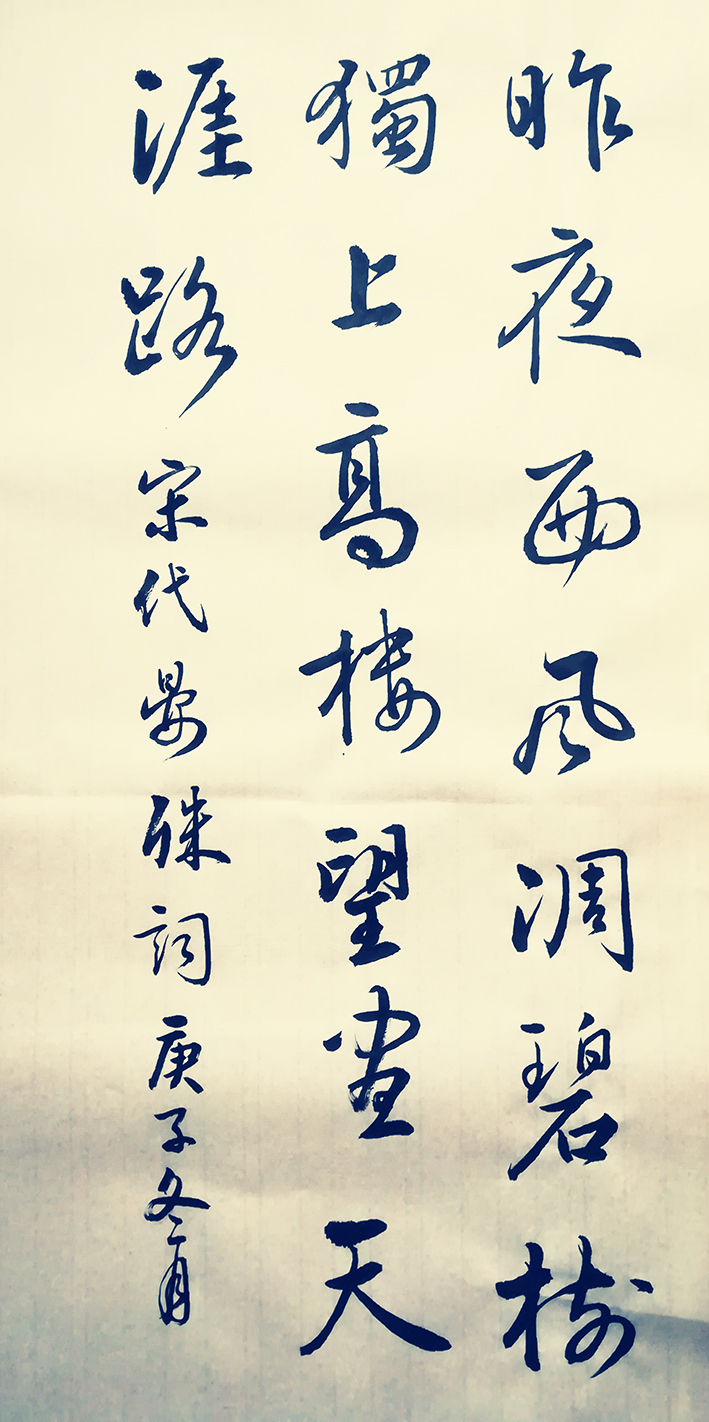 昨夜西風凋碧樹
獨上高樓望盡天
涯路 宋代晏殊詞庚子冬月